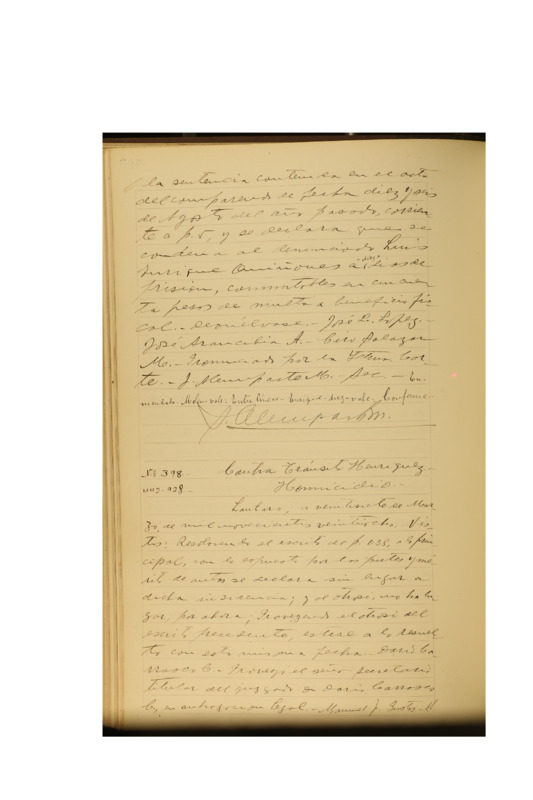 la sentencia contenida en el acta
del comparendo de fecha diez y seis
de Agosto del año pasado, corrien-
te a f. 5, y se declara que se
condena al denunciado Luis
Enrique Quiñones a diez días de
prisión, conmutables en cincuen
ta pesos de multa a beneficio fis
cal.- Devuélvase.- José L. López.-
José Arancibia A.- Ciro Salazar
M.- Pronunciado por la Iltma. Cor-
te.- J. Alemparte M.- Sec.- En-
mendado- vale- Entre líneas- Enrique- diez- vale- Conforme-
J. Alemparte M.
N° 398. Contra Tránsito Henríquez
Homicidio.-
Lautaro, a veintisiete de Mar
zo, de mil novecientos veintiocho. Vis-
tos: Resolviendo el escrito de f. a lo prin
cipal, con lo expuesto por las partes y mé
rito de autos se declara sin lugar a
dicha incidencia; y al otrosí, no ha lu
gar, por ahora; Proveyendo el otrosí del
escrito precedente, estése a lo resuel
to con esta misma fecha. Darío Ca
rrasco C.- Proveyó el señor secretario
titular del juzgado Dn Darío Carrasco
C., en subrogación legal.- Manuel J.